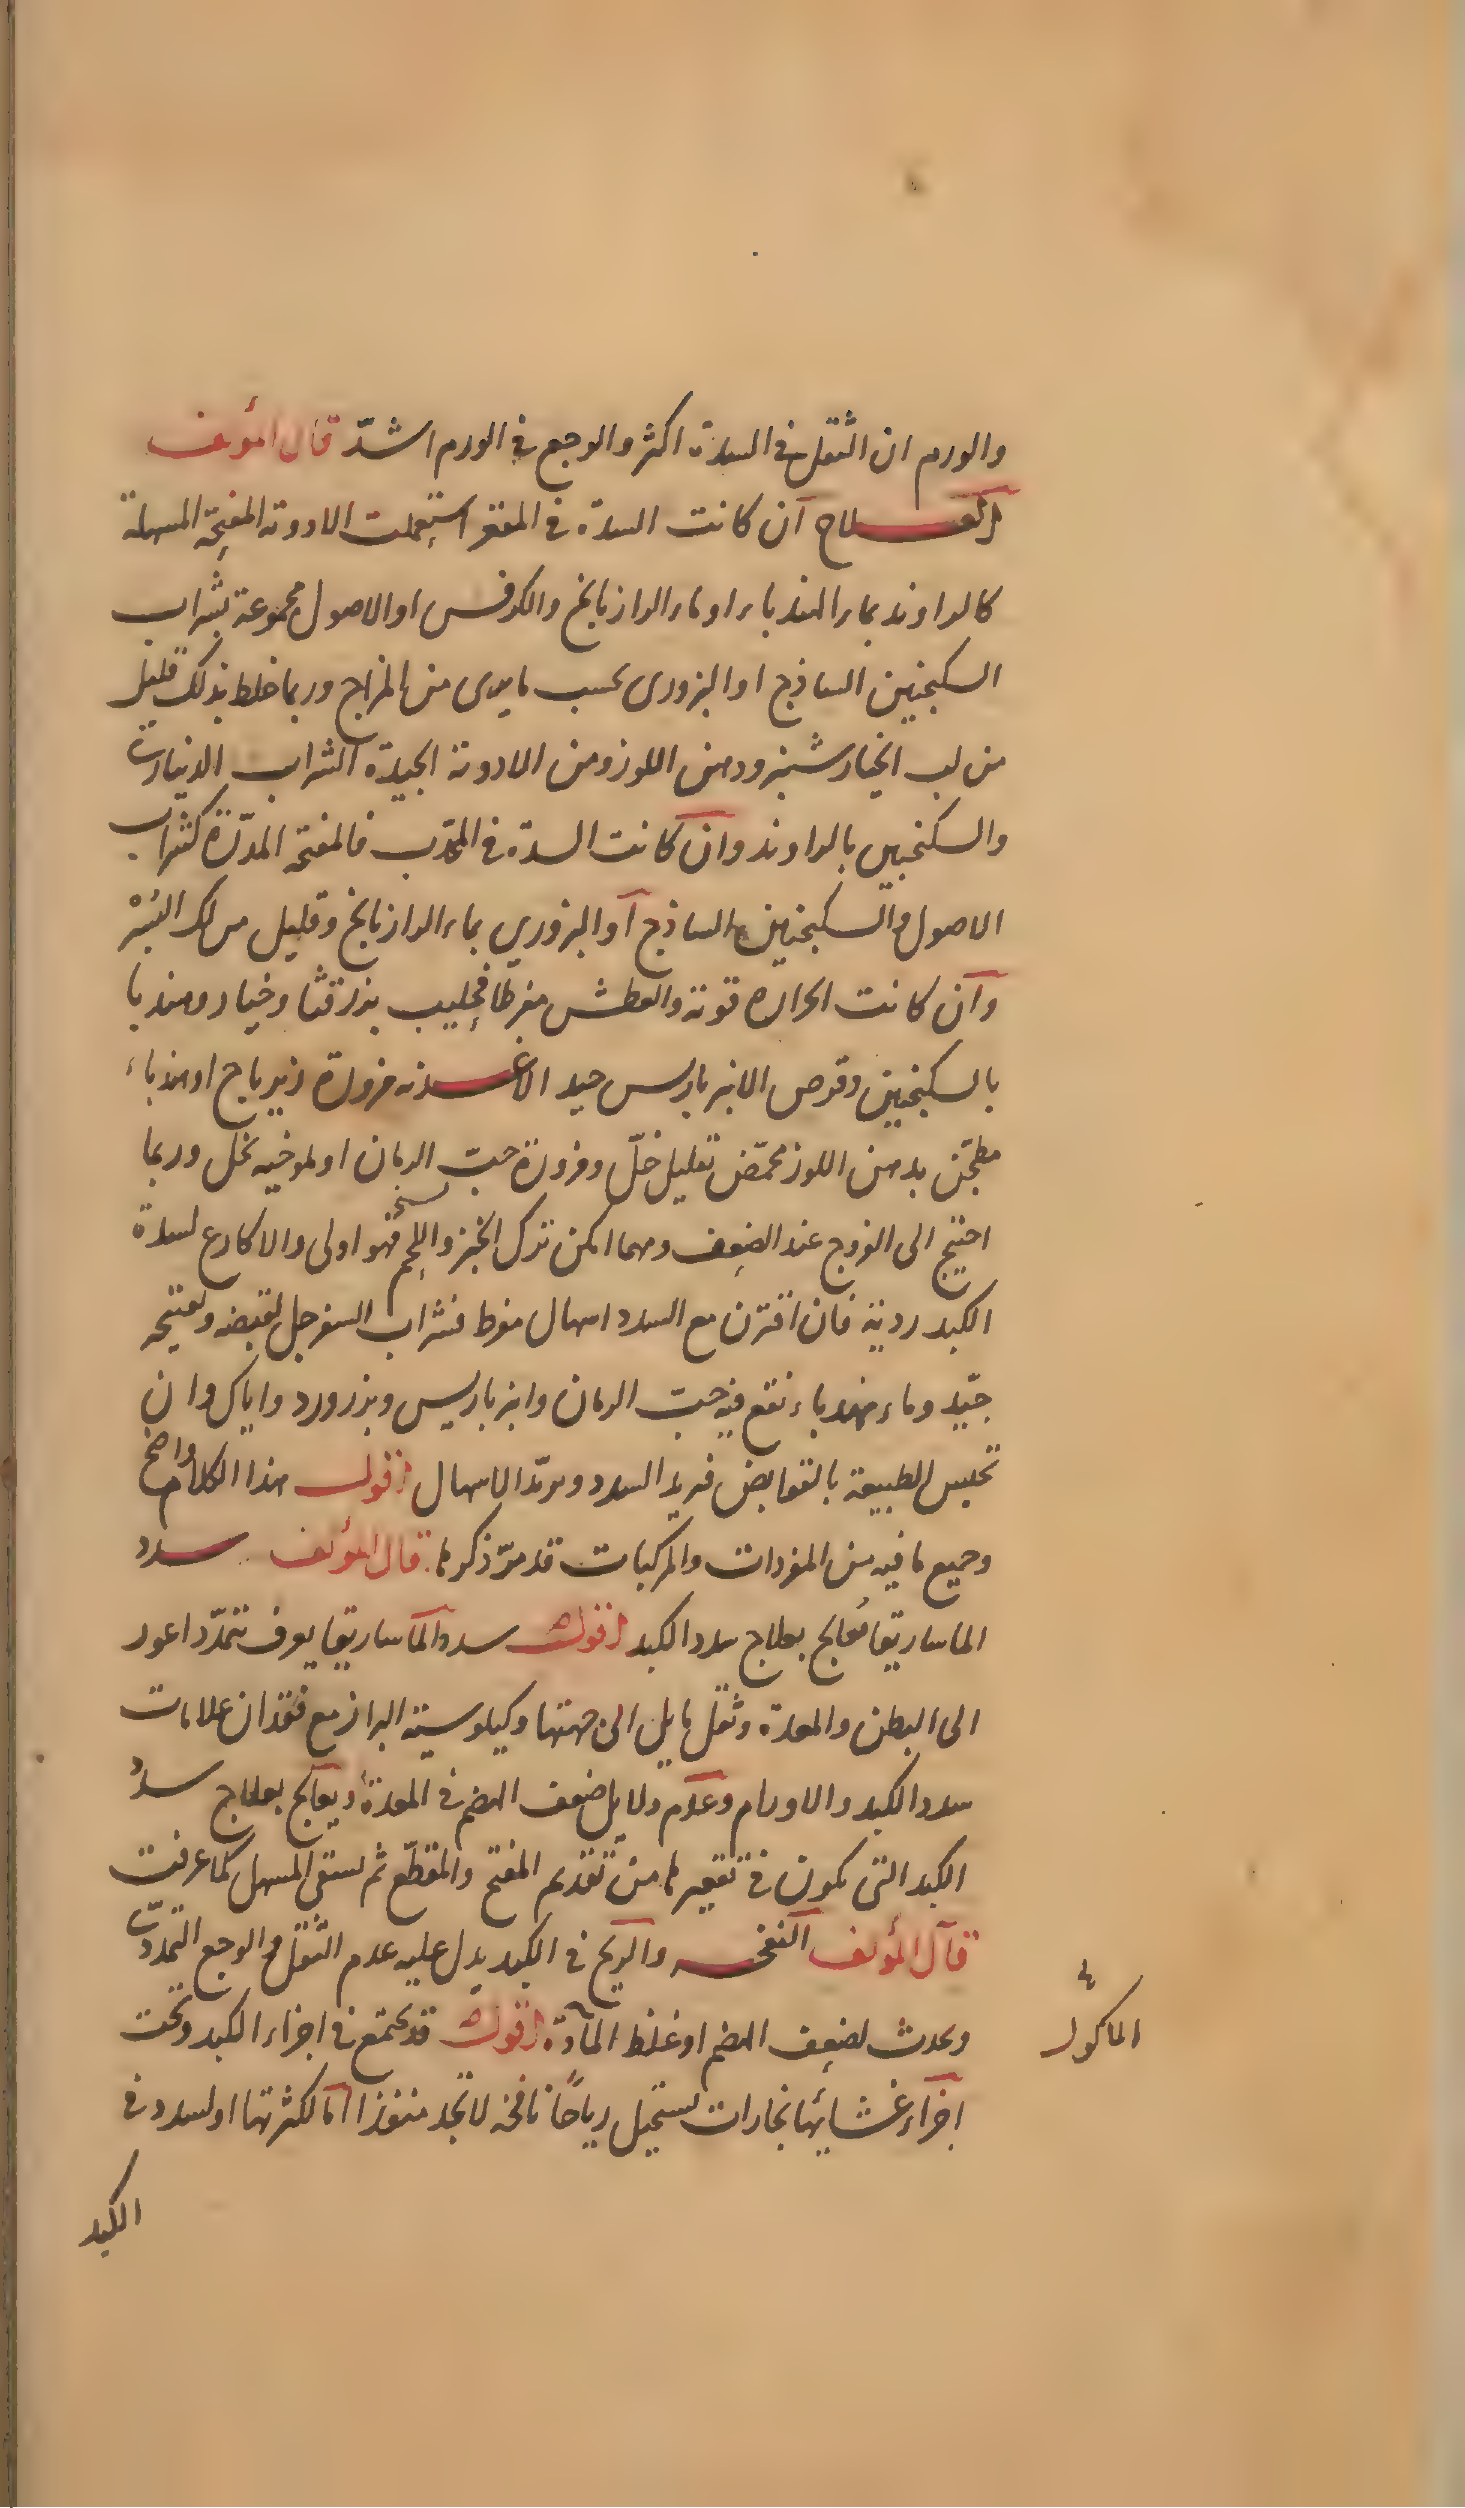 والورم ان الثقل في السدة اكثر والوجع في الورم اشدّ قال المؤلف
العلاج ان كانت السدة في المقعر استعملت الادوية المفتحة المسهلة
كالراوند بماء الهندباء او ماء الرازيانج والكرفس او الاصول مجموعة بشراب
السكنجبين الساذج او البزورى بحسب ما يرى من المزاج وربما خلط بذلك قليل
من لب الخيارشنبر ودهن اللوز ومن الادوية الجيدة الشراب الدينارى
والسكنجبين بالراوند وان كانت السدة في المحدّب فالمفتحة المدرّة كشراب
الاصول والسكنجبين الساذج او البزوري بماء الرازيانج وقليل من لك البُسْر
وان كانت الحرارة قوية والعطش مفرطا فحليب بزر قثا وخيار وهندبا
بالسكنجبين وقرص الانبرباريس جيد الاغذية مزورة زيرباج او هندباء
مطجّن بدهن اللوز محمّض بقليل خلّ ومزورة حبّ الرمان او ملوخيه بخل وربما
احتيج الى الفروج عند الضعف ومهما امكن ترك الخبز واللحم فهو اولى والاكارع لسدة
الكبد ردية فان اقترن مع السدد اسهال مفرط فشراب السفرجل لقبضه وتفتيحه
جيّد وماء هندباء نقع فيه حبّ الرمان وانبرباريس وبزر ورد واياك وان
تحبس الطبيعة بالقوابض فيزيد السدد ويردّ الاسهال اقول هذا الكلام واضح
وجميع ما فيه من المفردات والمركبات قد مرّ ذكرها قال المؤلف سدد
الماساريقا تُعالج بعلاج سدد الكبد اقول سدد الماساريقا يعرف بتمدّد اعور
الى البطن والمعدة وثقل مايل الى جهتها وكيلوسية البراز مع فقدان علامات
سدد الكبد والاورام وعدم دلايل ضعف الهضم في المعدة ويعالج بعلاج سدد
الكبد التى تكون في تقعيرها من تقديم المفتح والمقطّع ثم سقى المسهل كما عرفت
قال المؤلف النفخة والريح في الكبد يدل عليه عدم الثقل والوجع التمددى
ويحدث لضعف الهضم او غلظ المادة اقول قد يجتمع في اجزاء الكبد وتحت
الماكول
اجزاء غشايها بخارات تستحيل رياحًا نافخة لا تجد منفذا اما لكثرتها او لسدد في
الكبد